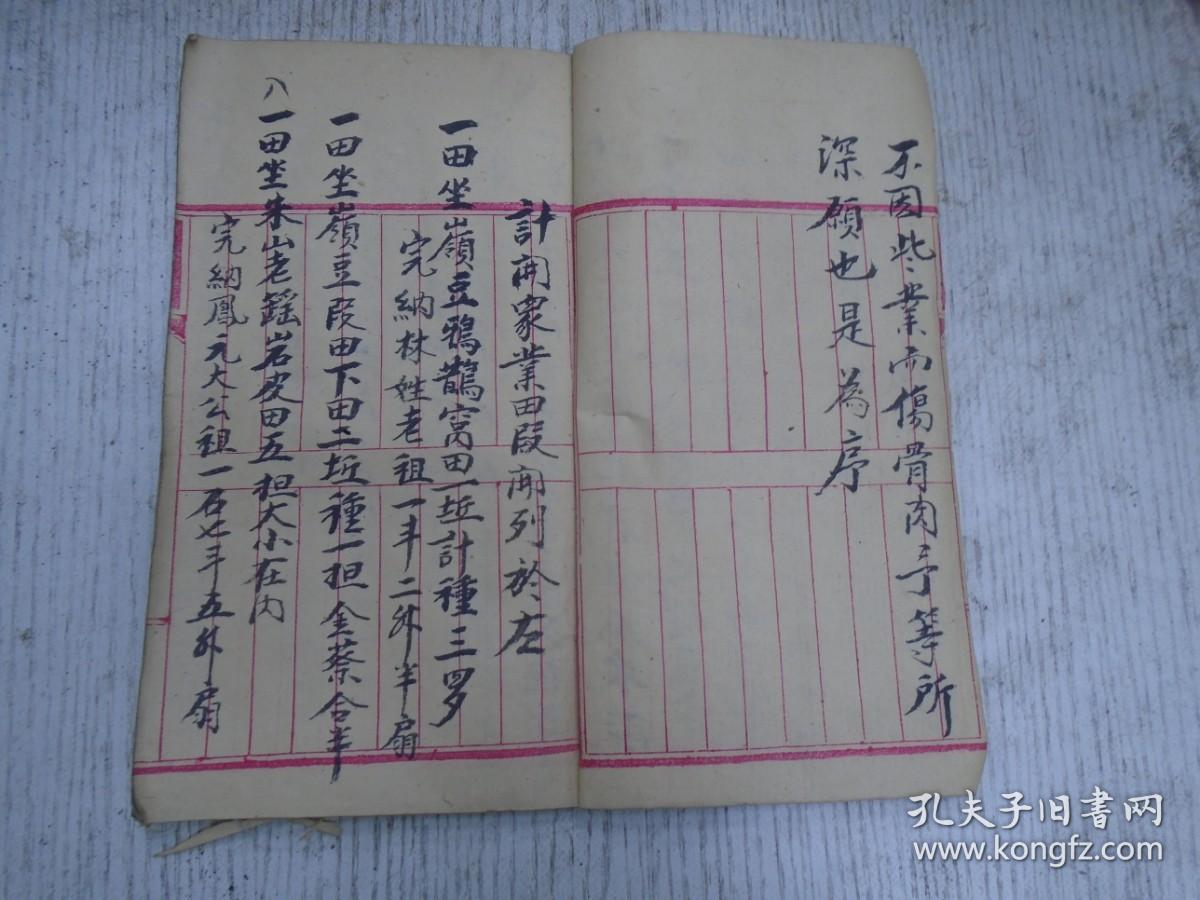 不因此業而傷骨肉予等所
深願也是為序
計開衆業田段開列於左
一田坐嶺豆鴉鵲窩田一坵計種三罗
完納林姓老祖一斗二升半扇
一田坐嶺豆段田下田二坵種一担金蔡合半
八
一田坐朱山老鷂岩皮田五担大小在内
完納鳳元大公祖一石七斗五升扇
孔夫子旧书网
www.kongfz.com